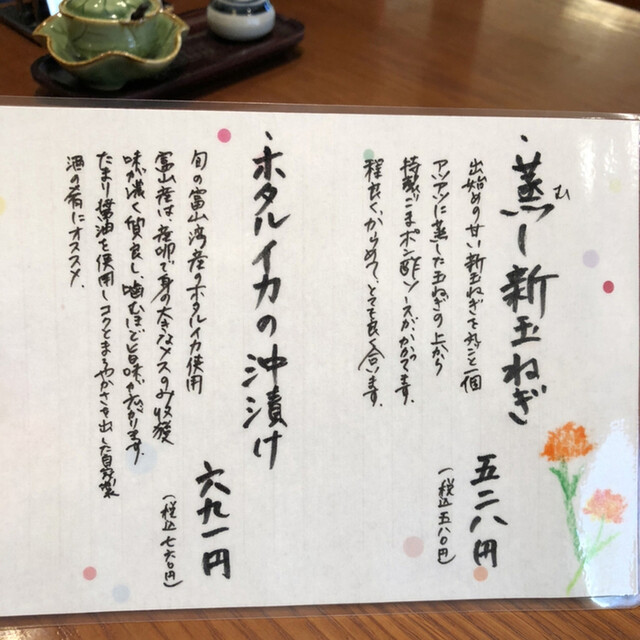 ・蒸し新玉ねぎ
出始めの甘い新玉ねぎを丸ごと一個
アツアツに蒸した玉ねぎの上から
特製ごまポン酢ソースがかかってます。
程良くからめて、とても良く合います。
五二八円
(税込五八〇円)
・ホタルイカの沖漬け
旬の富山湾産ホタルイカ使用
富山産は、産卵で身の大きなメスのみ収穫
味が濃く食感良し、噛むほど旨味が広がります。
たまり醤油を使用しコクとまろやかさを出した自家製
酒の肴にオススメ。
六九一円
(税込七六〇円)